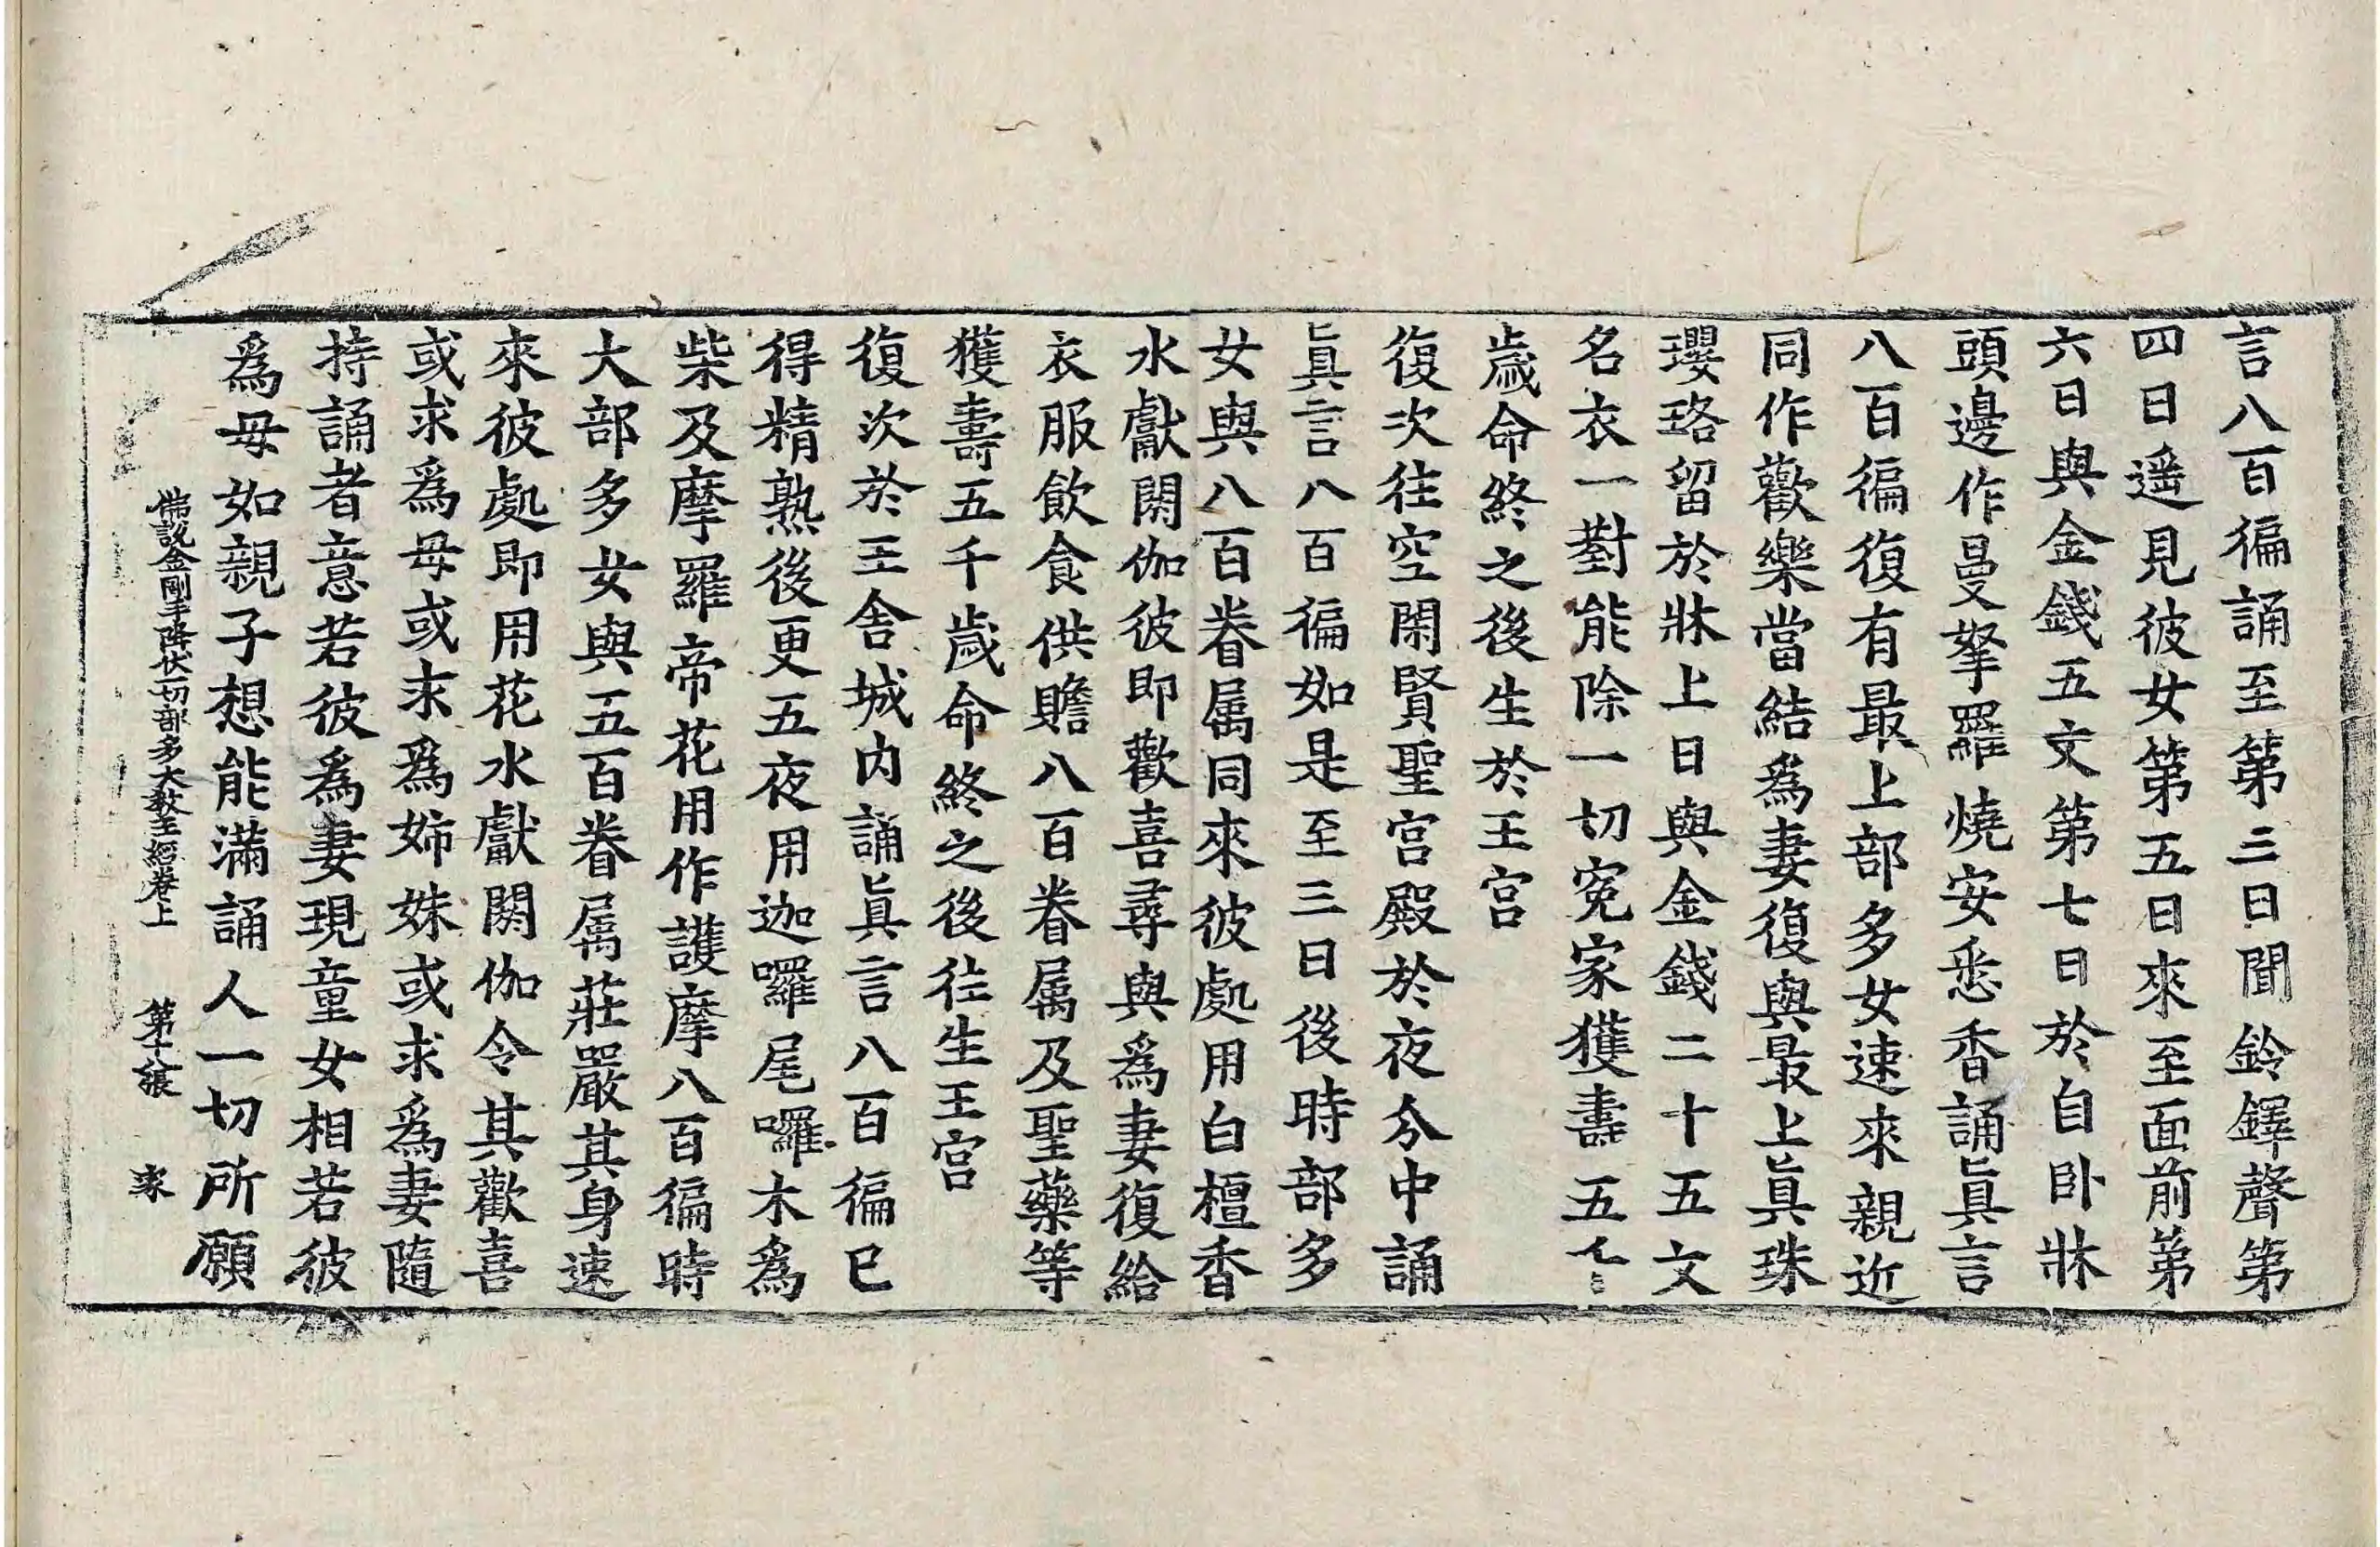 言八百徧誦至第三日聞鈴鐸聲第
四日遥見彼女第五日來至面前第
六日與金錢五文第七日於自卧牀
頭邊作曼拏羅燒安悉香誦眞言
八百徧復有最上部多女速來親近
同作歡樂當結爲妻復與最上眞珠
瓔珞留於牀上日與金錢二十五文
名衣一對能除一切寃家獲壽五
歲命終之後生於王宮
復次往空閑賢聖宮殿於夜分中誦
眞言八百徧如是至三日後時部多
女與八百眷属同來彼處用白檀香
水獻閼伽彼即歡喜尋與爲妻復給
衣服飲食供贍八百眷属及聖藥等
獲壽五千歲命終之後往生王宮
復次於王舍城内誦眞言八百徧已
得精熟後更五夜用迦囉尾囉木爲
柴及摩羅帝花用作護摩八百徧時
大部多女與五百眷属莊嚴其身速
來彼處即用花水獻閼伽令其歡喜
或求爲母或求爲姉妹或求爲妻隨
持誦者意若彼爲妻現童女相若彼
爲母如親子想能滿誦人一切所願
佛說金剛手降伏一切部多大教王經卷上 第十張 家